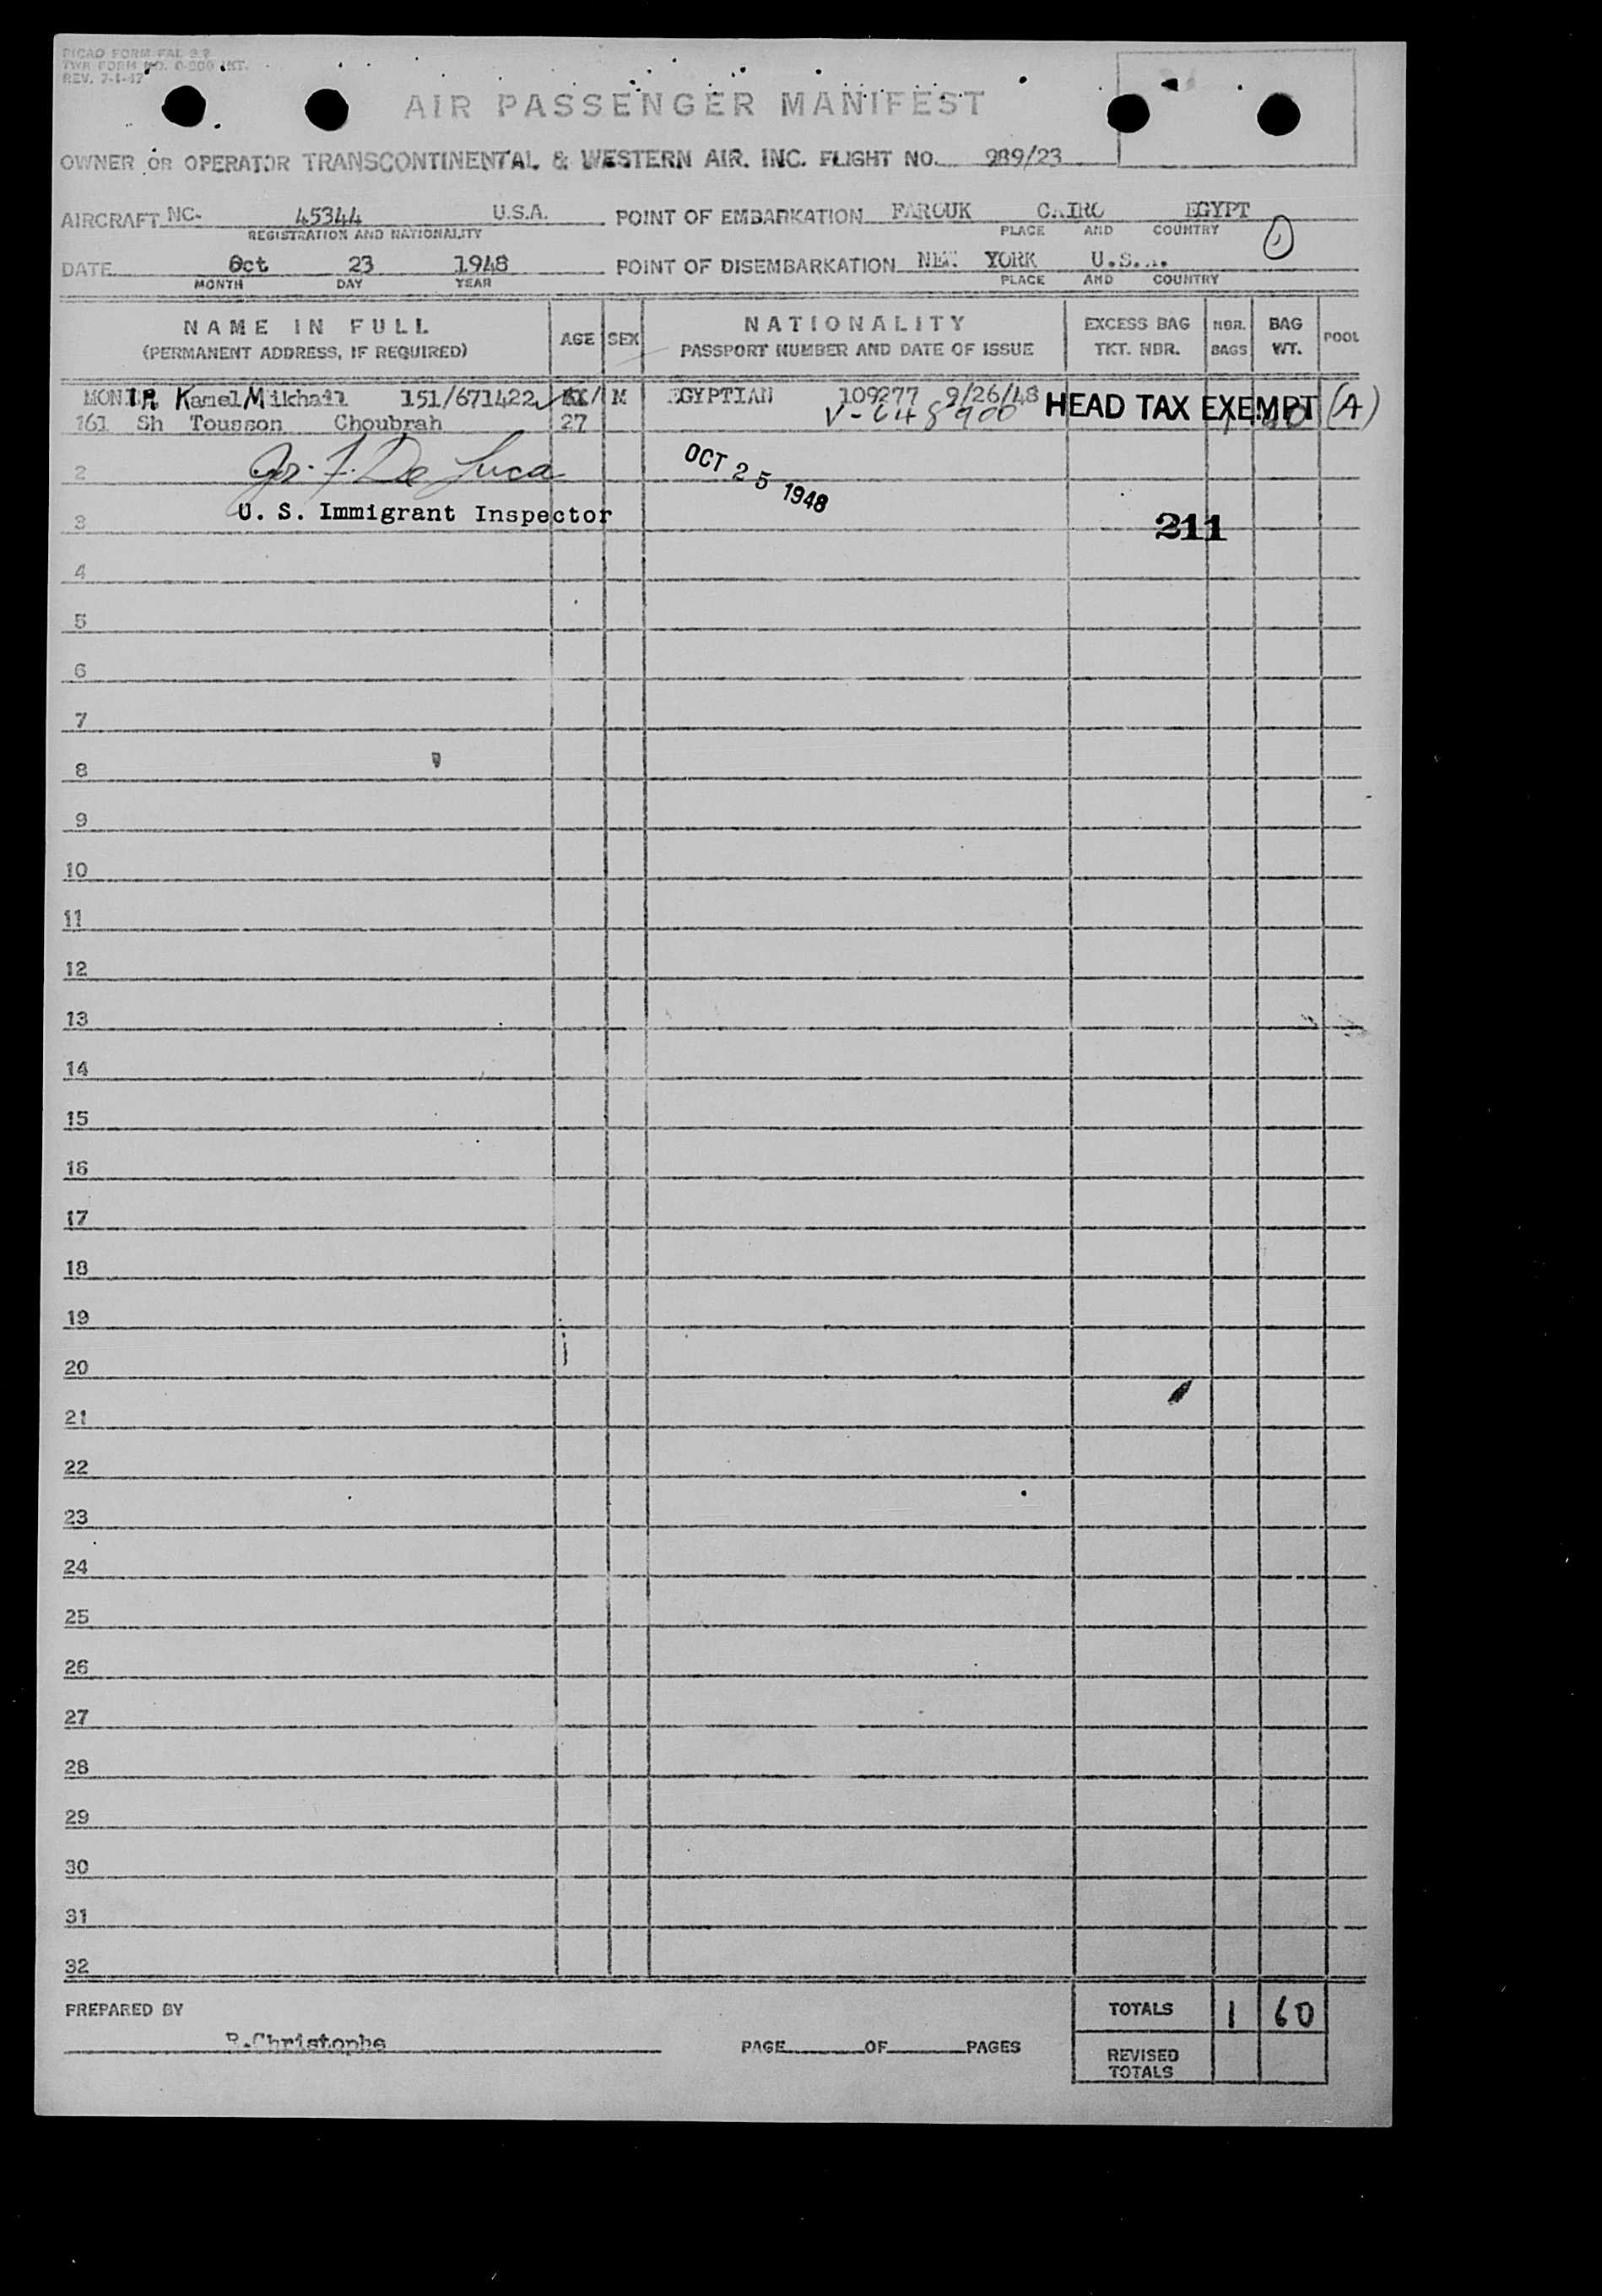 PICAO FORM FAL 2.2
TWA FORM NO. 0-200 INT.
REV. 7-1-47
AIR PASSENGER MANIFEST
OWNER OR OPERATOR TRANSCONTINENTAL & WESTERN AIR. INC. FLIGHT NO. 989/23
AIRCRAFT NC- 45344 U.S.A. POINT OF EMBARKATION FAROUK CAIRO EGYPT
REGISTRATION AND NATIONALITY PLACE AND COUNTRY
DATE Oct 23 1948 POINT OF DISEMBARKATION NEW YORK U.S.A.
MONTH DAY YEAR PLACE AND COUNTRY
NAME IN FULL AGE SEX NATIONALITY EXCESS BAG NBR. BAG POOL
(PERMANENT ADDRESS, IF REQUIRED) PASSPORT NUMBER AND DATE OF ISSUE TKT. NBR. BAGS WT.
MONIR Kamel Mikhail 151/671422 M EGYPTIAN 109277 9/26/48 HEAD TAX EXEMPT (A)
161 Sh Tousson Choubrah 27 V-648900
2 Jos. F. De Luca OCT 25 1948
3 U. S. Immigrant Inspector 211
4
5
6
7
8
9
10
11
12
13
14
15
16
17
18
19
20
21
22
23
24
25
26
27
28
29
30
31
32
PREPARED BY TOTALS 1 60
R.Christophe PAGE OF PAGES REVISED
TOTALS